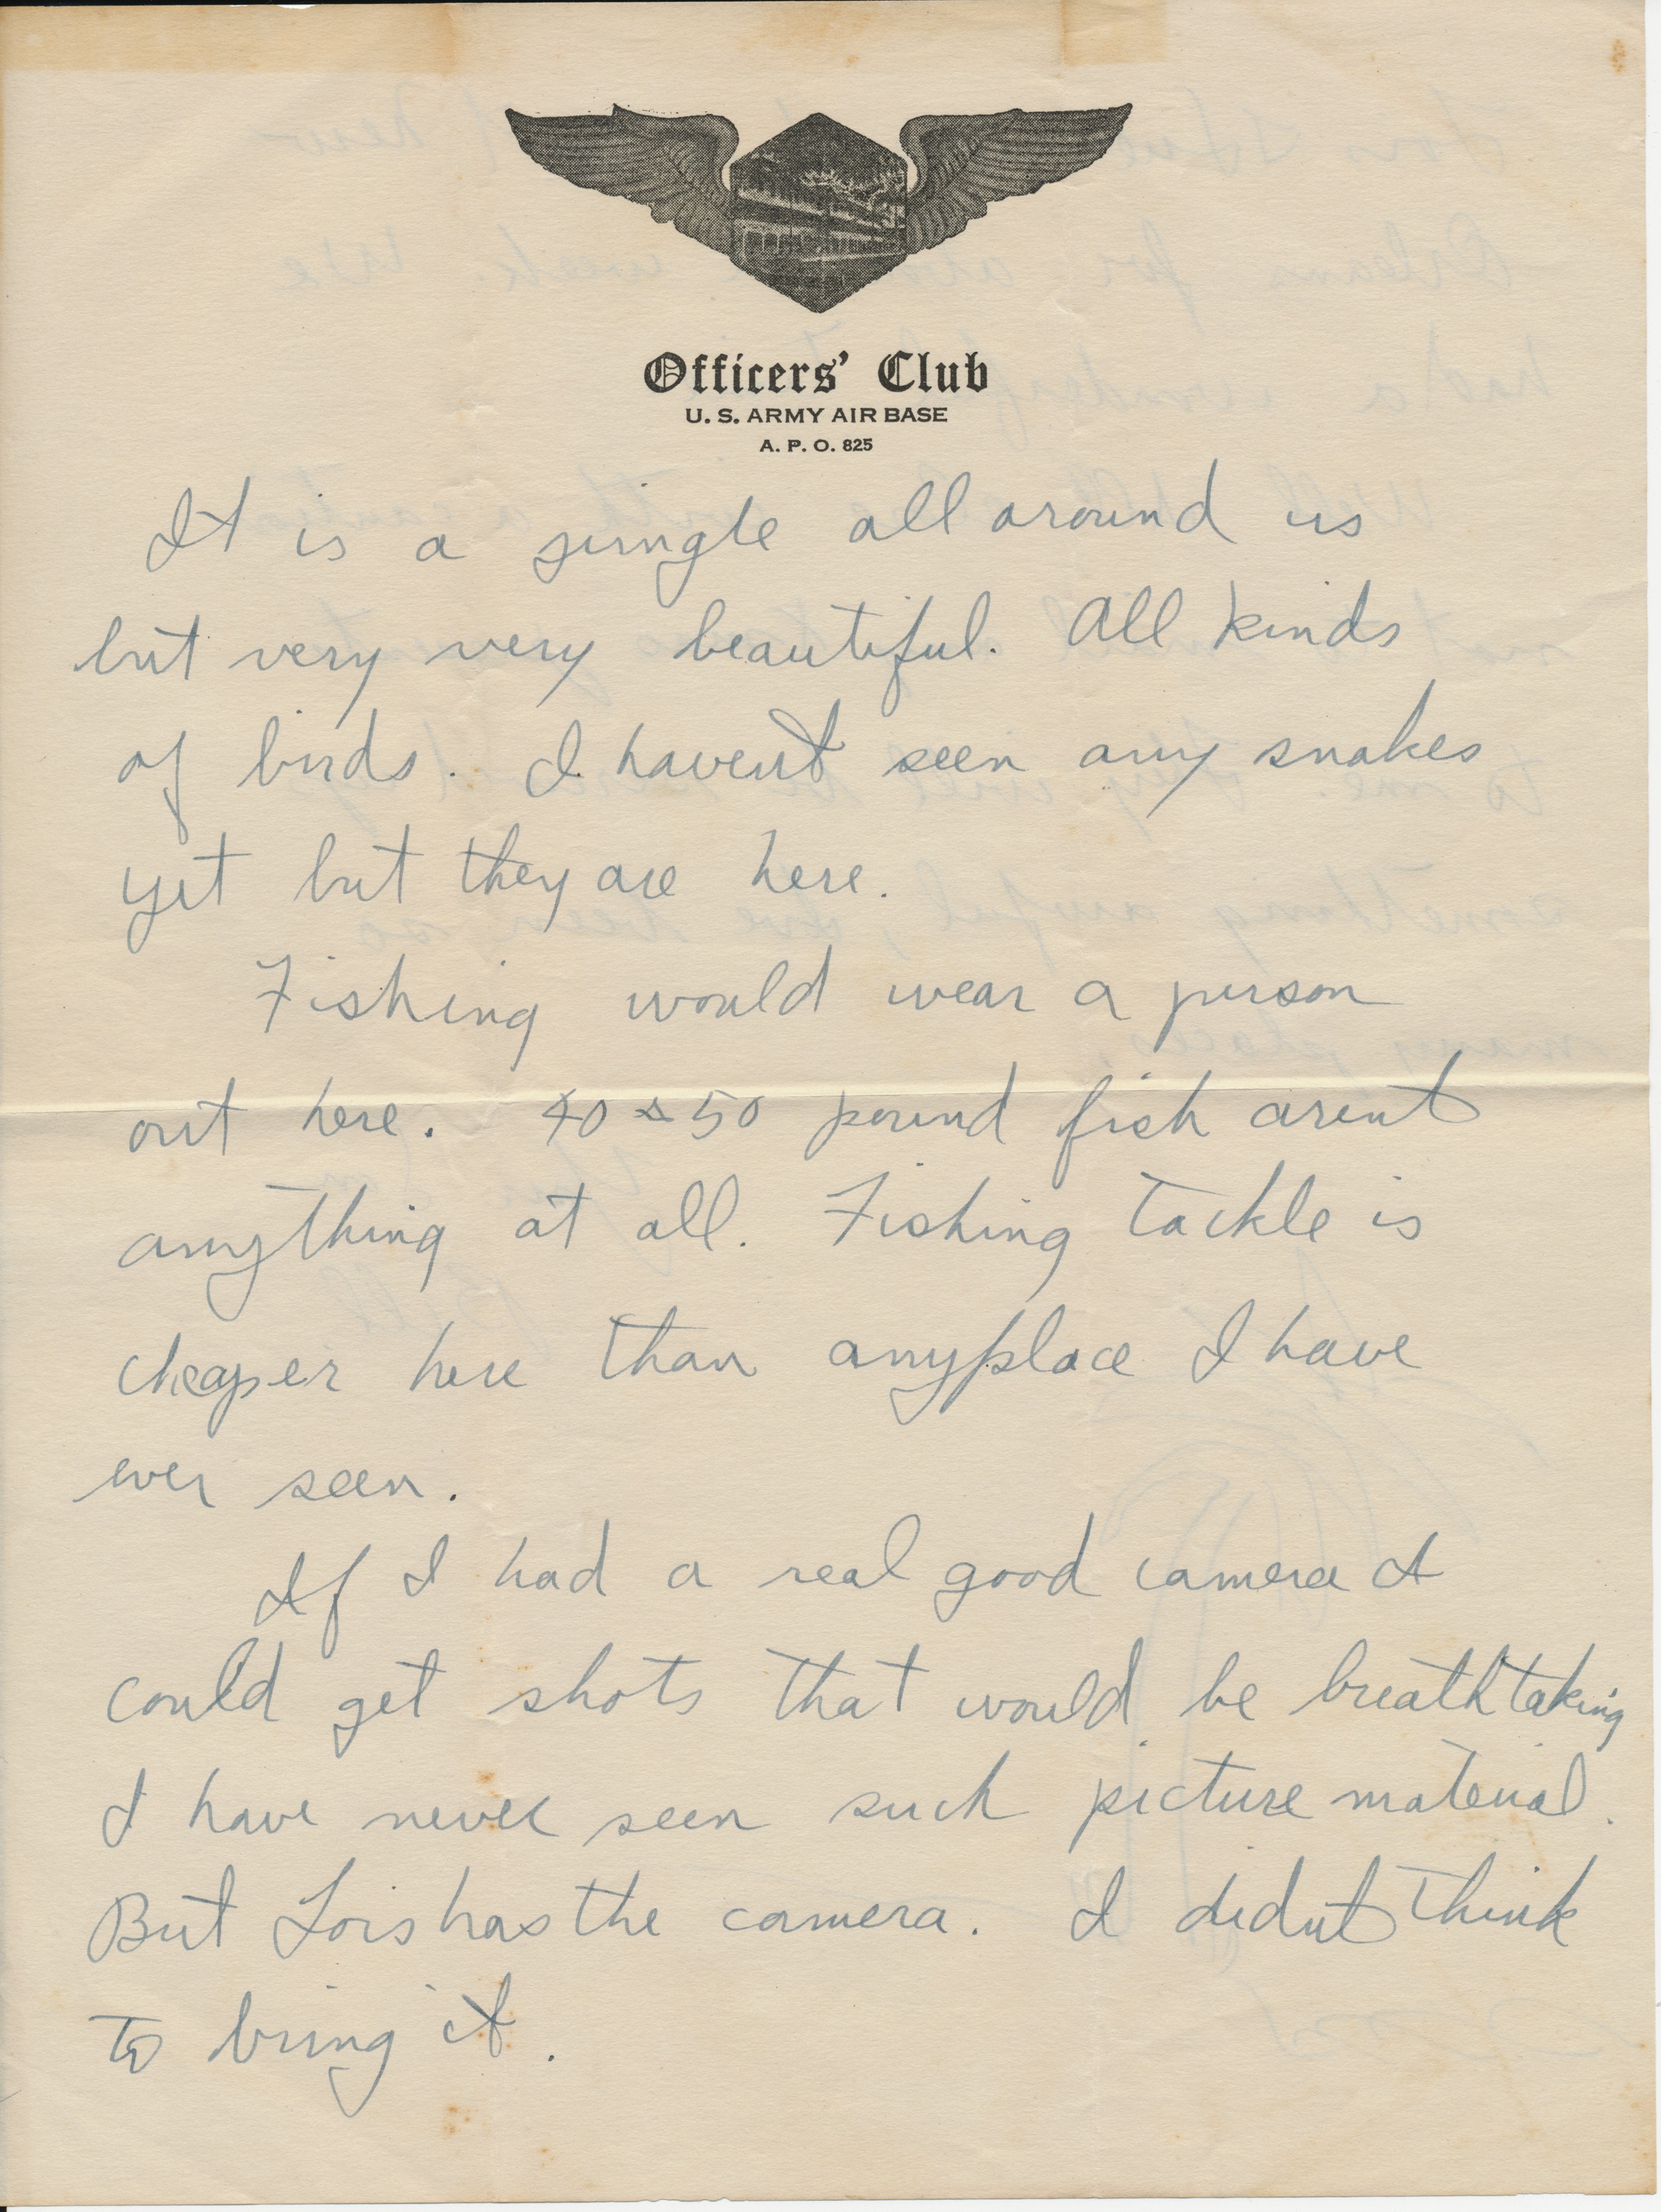 Officers' Club
U. S. ARMY AIR BASE
A. P. O. 825
It is a jungle all around us
but very very beautiful. All kinds
of birds. I havent seen any snakes
yet but they are here.
Fishing would wear a person
out here. 40 & 50 pound fish arent
anything at all. Fishing tackle is
cheaper here than anyplace I have
ever seen.
If I had a real good camera I
could get shots that would be breathtaking
I have never seen such picture material.
But Lois has the camera. I didnt think
to bring it.